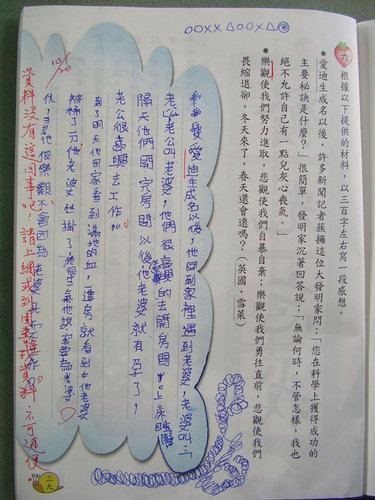 OOXX△OOX△
六 根據以下提供的材料，以三百字左右寫一段感想。
●愛迪生成名以後，許多新聞記者簇擁這位大發明家問：「您在科學上獲得成功的
主要祕訣是什麼？」很簡單，發明家沉著回答說：「無論何時，不管怎樣，我也
絕不允許自己有一點兒灰心喪氣。」
●樂觀使我們努力進取，悲觀使我們自暴自棄；樂觀使我們勇往直前，悲觀使我們
畏縮退卻。冬天來了，春天還會遠嗎？（英國．雪萊）
愛迪生成名以後，他回到家裡遇到老婆，老婆叫
老公老公叫老婆，他們很高興的去開房間
隔天他們開完房間以後他老婆就有孕了，
老公很高興去工作
到了明天他回家看到滿地的血，一進房就看到他老婆
被捅了
樂觀不會因為老婆
10/20
資料沒有這回事吧！請上網或到圖書館找資料，不可造假。
三九